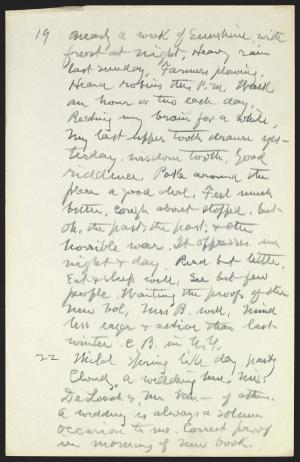 19 Nearly a week of sunshine with
frost at night, Heavy rain
last sunday, Farmers plowing.
Heard robins this P.m. Walk
an hour or two each day.
Resting my brain for a while,
My last upper tooth drawn yes-
terday, wisdom tooth, Good
riddance. Poke around the
place a good deal, Feel much
better, cough about stopped, but
oh, the past, the past, & the
horrible war. It oppresses me
night & day. Read but little.
Eat & sleep well, See but few
people. Waiting the proofs of the
new vol, Mrs B. well, mind
less eager & active than last
winter. C B. in N.Y.
22 Mild spring like day, partly
cloudy, a wedding here Miss
De Loach & Mr. - of Athens.
A wedding is always a solemn
occasion to me. Correct proof
in morning of new book.